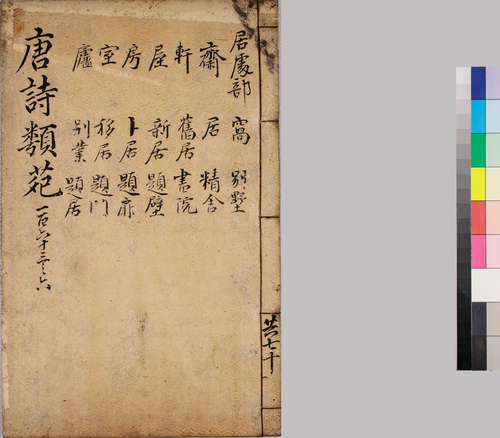 共七十
居處部 窩 別墅
齋 居 精舍
軒 舊居 書院
屋 新居 題壁
房 卜居 題扉
室 移居 題門
廬 別業 題居
唐詩類苑 一百六十三之六